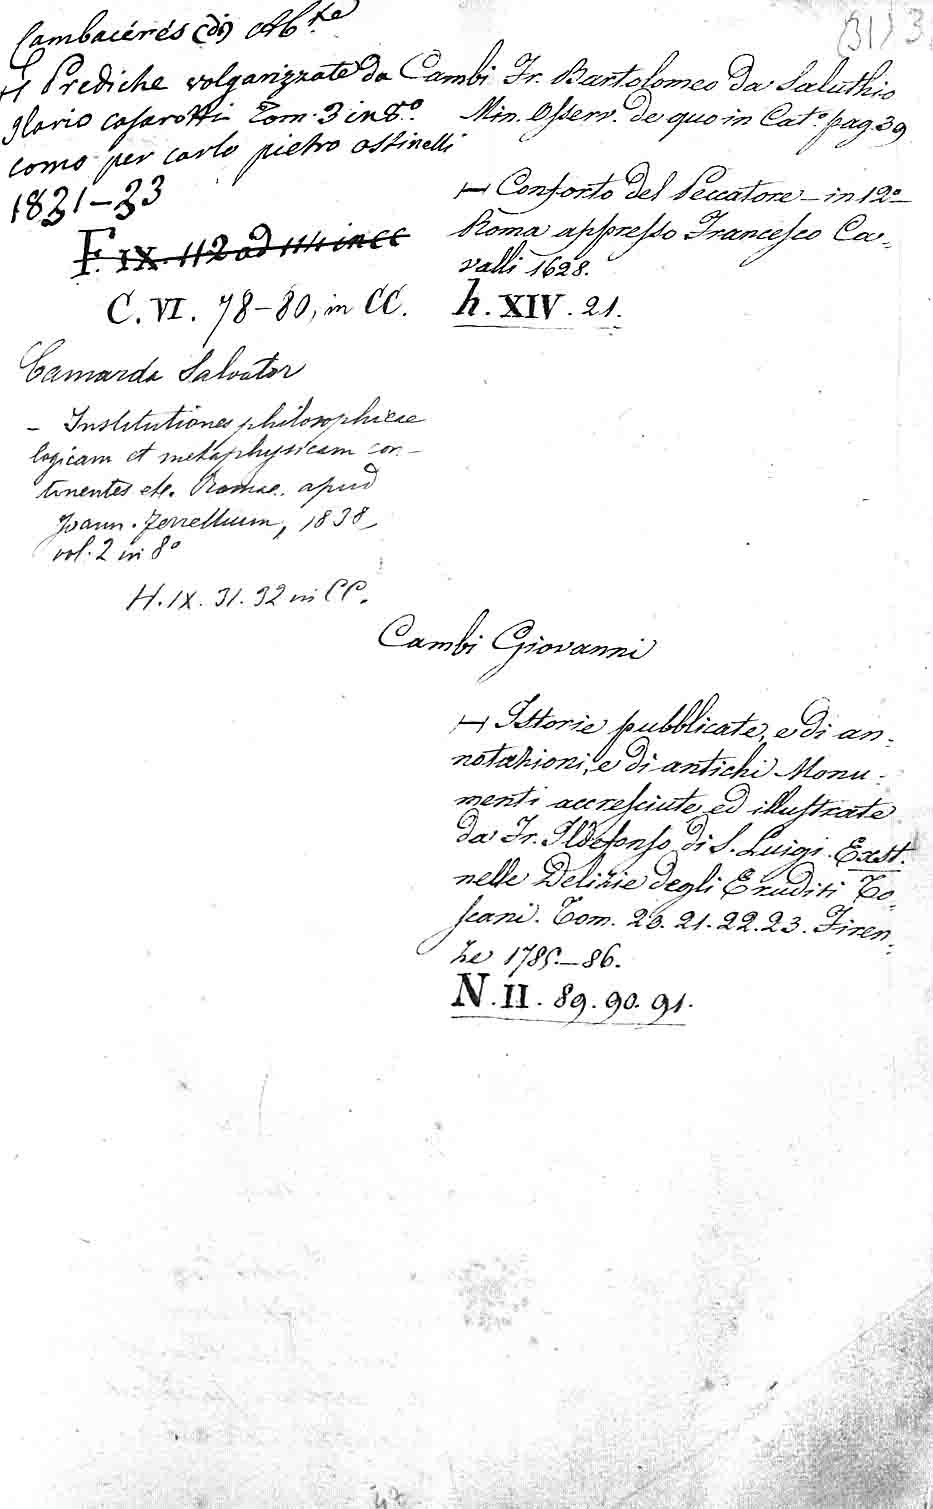 Cambacérés (di) Ab.te
H Prediche volgarizzate da
Ilario casarotti Tom. 3 in 8.°
como per carlo pietro ostinelli
1831-33
F. IX. 112 ad 114 in CC
C. VI. 78-80, in CC.
Camarda Salvator
- Institutiones philosophicae
logicam et metaphysicam con-
tinentes etc. Romae. apud
Joann. Ferrettium, 1838,
vol. 2 in 8°
H. IX. 31. 32 in CC.
(31) 3
Cambi Fr. Bartolomeo da Saluthio
Min. Osserv. de quo in Cat.° pag. 39
H Conforto del Peccatore - in 12°-
Roma appresso Francesco Ca-
valli 1628.
h. XIV. 21.
Cambi Giovanni
H Istorie pubblicate, e di an-
notazioni, e di antichi Monu-
menti accresciute, ed illustrate
da Fr. Ildefonso di S. Luigi. Exst.
nelle Delizie degli Eruditi To-
scani. Tom. 20. 21. 22. 23. Firen-
ze 1785.-86.
N. II. 89. 90. 91.